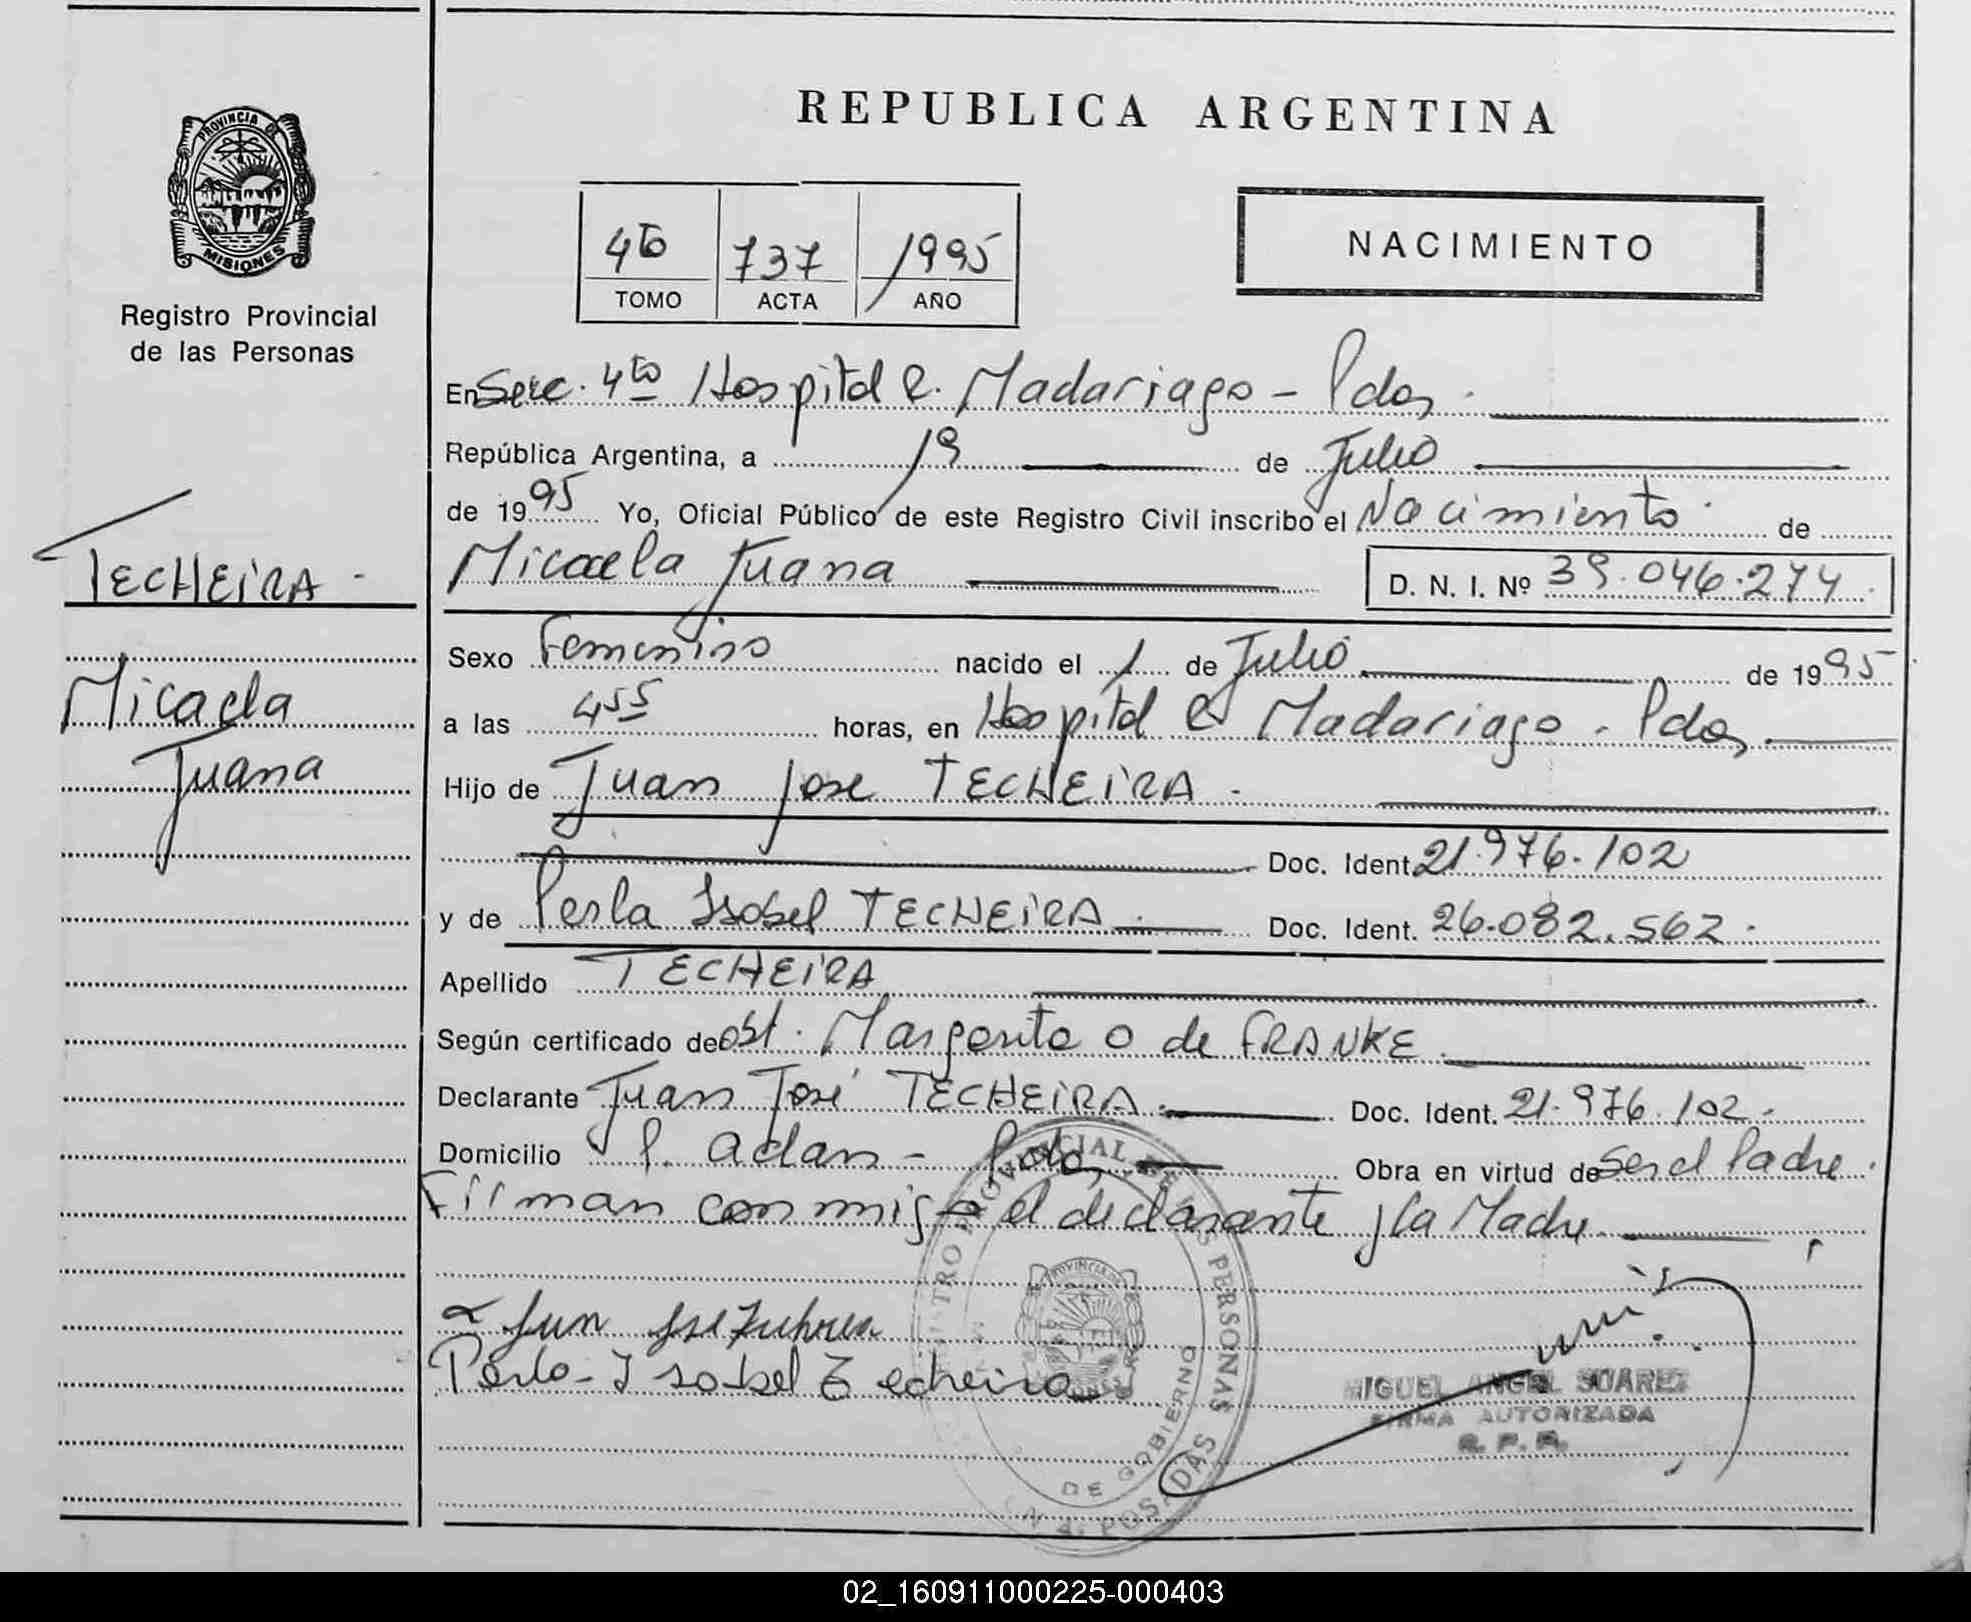 REPUBLICA ARGENTINA
PROVINCIA DE
MISIONES
Registro Provincial
de las Personas
4to 737 1995
TOMO ACTA AÑO
NACIMIENTO
En Secc. 4to Hospital R. Madariaga - Pdas.
República Argentina, a 19 de Julio
de 1995 Yo, Oficial Público de este Registro Civil inscribo el Nacimiento de
Micaela Juana D. N. I. Nº 39.046.274
TECHEIRA
Micaela
Juana
Sexo Femenino nacido el 1 de Julio de 1995
a las 4 55 horas, en Hospital R Madariaga - Pdas
Hijo de Juan Jose TECHEIRA.
Doc. Ident. 21.976.102
y de Perla Isabel TECHEIRA Doc. Ident. 26.082.562.
Apellido TECHEIRA
Según certificado de obst. Margarita O de FRANKE
Declarante Juan José TECHEIRA. Doc. Ident. 21.976.102.
Domicilio Pdas Obra en virtud de ser el Padre.
Firman conmigo el declarante y la Madre
Perla - Isabel Techeira
MIGUEL ANGEL SUAREZ
FIRMA AUTORIZADA
R. P. P.
02_160911000225-000403